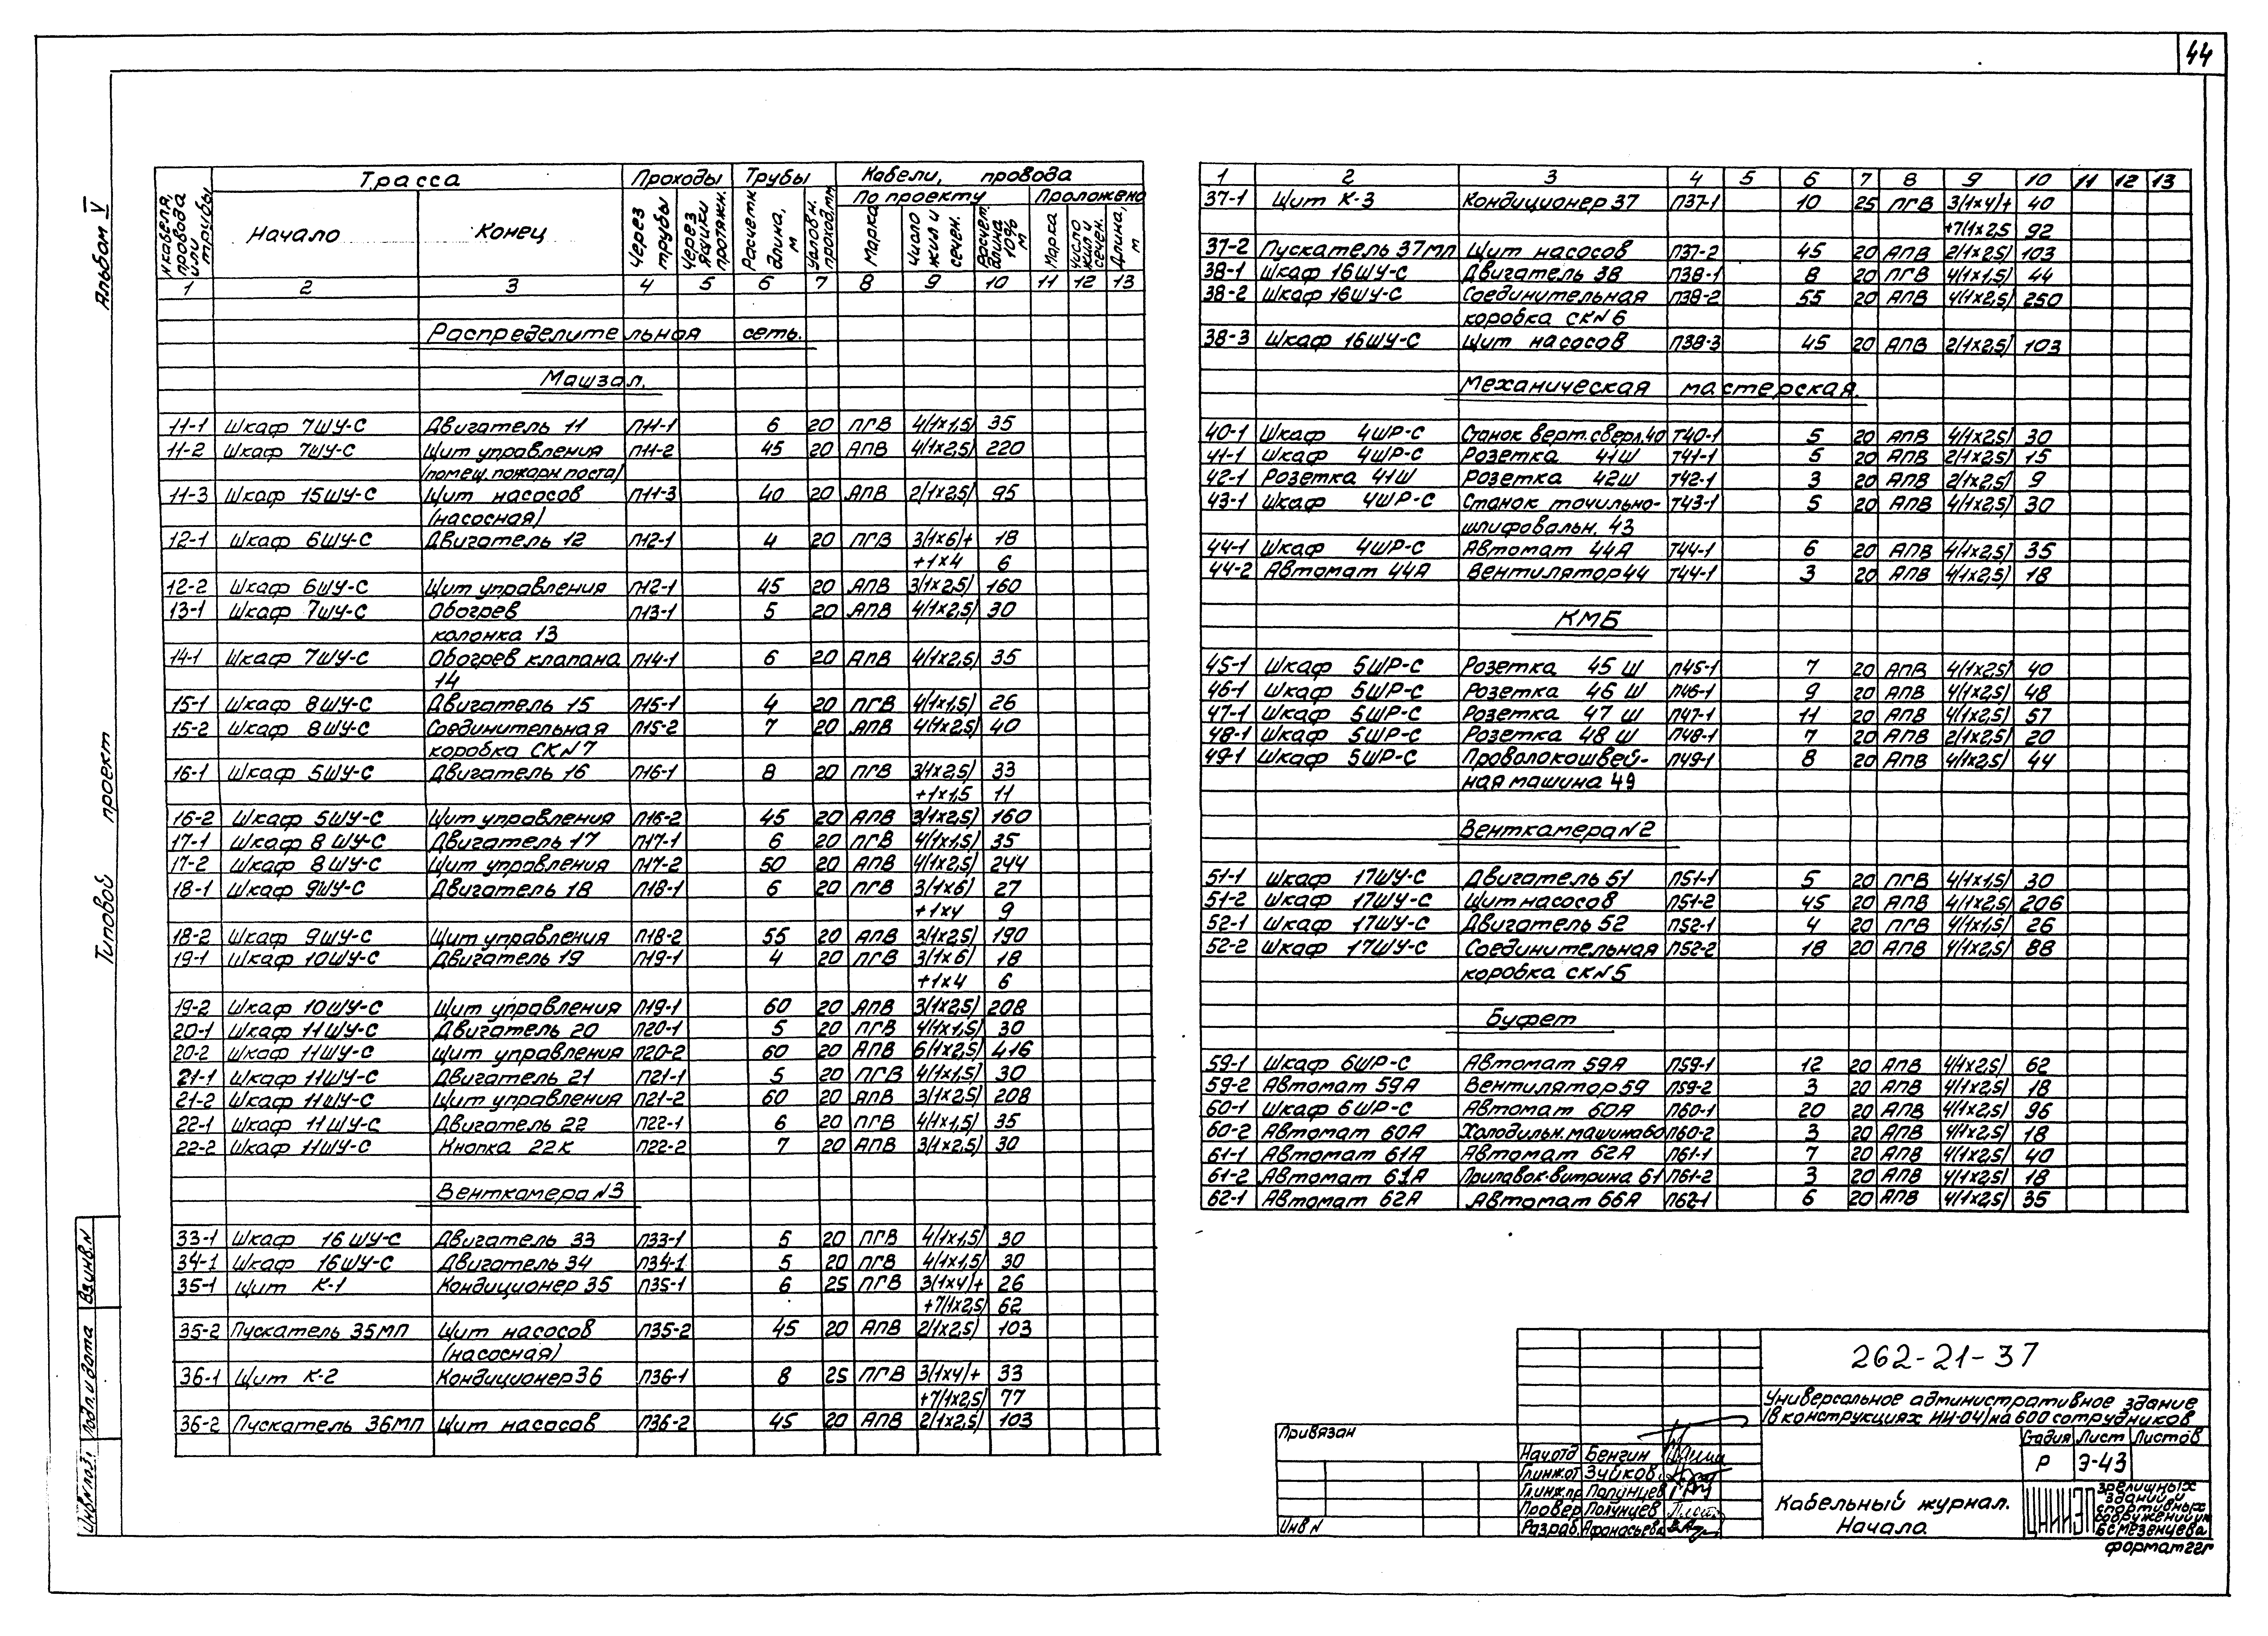 44
Альбом V
Типовой проект
№ кабеля, провода или трубы | Трасса | Проходы | Трубы | Кабели, провода
Начало | Конец | Через трубы | Через ящики протяжн. | Расчетн. длина, м | Условн. проход, мм | По проекту | Проложено
Марка | Число жил и сечен. | Расчет. длина 10% м | Марка | Число жил и сечен. | Длина, м
1 2 3 4 5 6 7 8 9 10 11 12 13
Распределительная сеть.
Машзал.
11-1 Шкаф 7ШУ-С Двигатель 11 П11-1 6 20 ПГВ 4(1×1,5) 35
11-2 Шкаф 7ШУ-С Щит управления П11-2 45 20 АПВ 4(1×2,5) 220
(помещ. пожарн. поста)
11-3 Шкаф 15ШУ-С Щит насосов П11-3 40 20 АПВ 2(1×2,5) 95
(насосная)
12-1 Шкаф 6ШУ-С Двигатель 12 П12-1 4 20 ПГВ 3(1×6)+ 18
+1×4 6
12-2 Шкаф 6ШУ-С Щит управления П12-1 45 20 АПВ 3(1×2,5) 160
13-1 Шкаф 7ШУ-С Обогрев П13-1 5 20 АПВ 4(1×2,5) 30
колонка 13
14-1 Шкаф 7ШУ-С Обогрев клапана П14-1 6 20 АПВ 4(1×2,5) 35
14
15-1 Шкаф 8ШУ-С Двигатель 15 П15-1 4 20 ПГВ 4(1×1,5) 26
15-2 Шкаф 8ШУ-С Соединительная П15-2 7 20 АПВ 4(1×2,5) 40
коробка СК№7
16-1 Шкаф 5ШУ-С Двигатель 16 П16-1 8 20 ПГВ 3(1×2,5) 33
+1×1,5 11
16-2 Шкаф 5ШУ-С Щит управления П16-2 45 20 АПВ 3(1×2,5) 160
17-1 Шкаф 8ШУ-С Двигатель 17 П17-1 6 20 ПГВ 4(1×1,5) 35
17-2 Шкаф 8ШУ-С Щит управления П17-2 50 20 АПВ 4(1×2,5) 244
18-1 Шкаф 9ШУ-С Двигатель 18 П18-1 6 20 ПГВ 3(1×6) 27
+1×4 9
18-2 Шкаф 9ШУ-С Щит управления П18-2 55 20 АПВ 3(1×2,5) 190
19-1 Шкаф 10ШУ-С Двигатель 19 П19-1 4 20 ПГВ 3(1×6) 18
+1×4 6
19-2 Шкаф 10ШУ-С Щит управления П19-1 60 20 АПВ 3(1×2,5) 208
20-1 Шкаф 11ШУ-С Двигатель 20 П20-1 5 20 ПГВ 4(1×1,5) 30
20-2 Шкаф 11ШУ-С Щит управления П20-2 60 20 АПВ 6(1×2,5) 416
21-1 Шкаф 11ШУ-С Двигатель 21 П21-1 5 20 ПГВ 4(1×1,5) 30
21-2 Шкаф 11ШУ-С Щит управления П21-2 60 20 АПВ 3(1×2,5) 208
22-1 Шкаф 11ШУ-С Двигатель 22 П22-1 6 20 ПГВ 4(1×1,5) 35
22-2 Шкаф 11ШУ-С Кнопка 22к П22-2 7 20 АПВ 3(1×2,5) 30
Венткамера №3
33-1 Шкаф 16ШУ-С Двигатель 33 П33-1 5 20 ПГВ 4(1×1,5) 30
34-1 Шкаф 16ШУ-С Двигатель 34 П34-1 5 20 ПГВ 4(1×1,5) 30
35-1 Щит К-1 Кондиционер 35 П35-1 6 25 ПГВ 3(1×4)+ 26
+7(1×2,5) 62
35-2 Пускатель 35МП Щит насосов П35-2 45 20 АПВ 2(1×2,5) 103
(насосная)
36-1 Щит К-2 Кондиционер 36 П36-1 8 25 ПГВ 3(1×4)+ 33
+7(1×2,5) 77
36-2 Пускатель 36МП Щит насосов П36-2 45 20 АПВ 2(1×2,5) 103
1 2 3 4 5 6 7 8 9 10 11 12 13
37-1 Щит К-3 Кондиционер 37 П37-1 10 25 ПГВ 3(1×4)+ 40
+7(1×2,5 92
37-2 Пускатель 37МП Щит насосов П37-2 45 20 АПВ 2(1×2,5) 103
38-1 Шкаф 16ШУ-С Двигатель 38 П38-1 8 20 ПГВ 4(1×1,5) 44
38-2 Шкаф 16ШУ-С Соединительная П38-2 55 20 АПВ 4(1×2,5) 250
коробка СК№6
38-3 Шкаф 16ШУ-С Щит насосов П38-3 45 20 АПВ 2(1×2,5) 103
Механическая мастерская.
40-1 Шкаф 4ШР-С Станок верт. сверл. 40 Т40-1 5 20 АПВ 4(1×2,5) 30
41-1 Шкаф 4ШР-С Розетка 41Ш Т41-1 5 20 АПВ 2(1×2,5) 15
42-1 Розетка 41Ш Розетка 42Ш Т42-1 3 20 АПВ 2(1×2,5) 9
43-1 Шкаф 4ШР-С Станок точильно- Т43-1 5 20 АПВ 4(1×2,5) 30
шлифовальн. 43
44-1 Шкаф 4ШР-С Автомат 44А Т44-1 6 20 АПВ 4(1×2,5) 35
44-2 Автомат 44А Вентилятор 44 Т44-1 3 20 АПВ 4(1×2,5) 18
КМБ
45-1 Шкаф 5ШР-С Розетка 45 Ш П45-1 7 20 АПВ 4(1×2,5) 40
46-1 Шкаф 5ШР-С Розетка 46 Ш П46-1 9 20 АПВ 4(1×2,5) 48
47-1 Шкаф 5ШР-С Розетка 47 Ш П47-1 11 20 АПВ 4(1×2,5) 57
48-1 Шкаф 5ШР-С Розетка 48 Ш П48-1 7 20 АПВ 2(1×2,5) 20
49-1 Шкаф 5ШР-С Проволокошвей- П49-1 8 20 АПВ 4(1×2,5) 44
ная машина 49
Венткамера №2
51-1 Шкаф 17ШУ-С Двигатель 51 П51-1 5 20 ПГВ 4(1×1,5) 30
51-2 Шкаф 17ШУ-С Щит насосов П51-2 45 20 АПВ 4(1×2,5) 206
52-1 Шкаф 17ШУ-С Двигатель 52 П52-1 4 20 ПГВ 4(1×1,5) 26
52-2 Шкаф 17ШУ-С Соединительная П52-2 18 20 АПВ 4(1×2,5) 88
коробка СК№5
Буфет
59-1 Шкаф 6ШР-С Автомат 59А П59-1 12 20 АПВ 4(1×2,5) 62
59-2 Автомат 59А Вентилятор 59 П59-2 3 20 АПВ 4(1×2,5) 18
60-1 Шкаф 6ШР-С Автомат 60А П60-1 20 20 АПВ 4(1×2,5) 96
60-2 Автомат 60А Холодильн. машина 60 П60-2 3 20 АПВ 4(1×2,5) 18
61-1 Автомат 61А Автомат 62А П61-1 7 20 АПВ 4(1×2,5) 40
61-2 Автомат 61А Прилавок-витрина 61 П61-2 3 20 АПВ 4(1×2,5) 18
62-1 Автомат 62А Автомат 66А П62-1 6 20 АПВ 4(1×2,5) 35
Инв№поз. Подп. и дата Вз.инв.№
Привязан
Инв №
262-21-37
Универсальное административное здание
(в конструкциях ИИ-04) на 600 сотрудников
Стадия Лист Листов
Р Э-43
Нач.отд Бенгин
Гл.инж.от Зубков
Гл.инж.пр Полунцев
Провер Полунцев
Разраб. Афанасьева
Кабельный журнал.
Начало.
ЦНИИЭП зрелищных
зданий и
спортивных
сооружений им
Б.С. Мезенцева
формат 22г